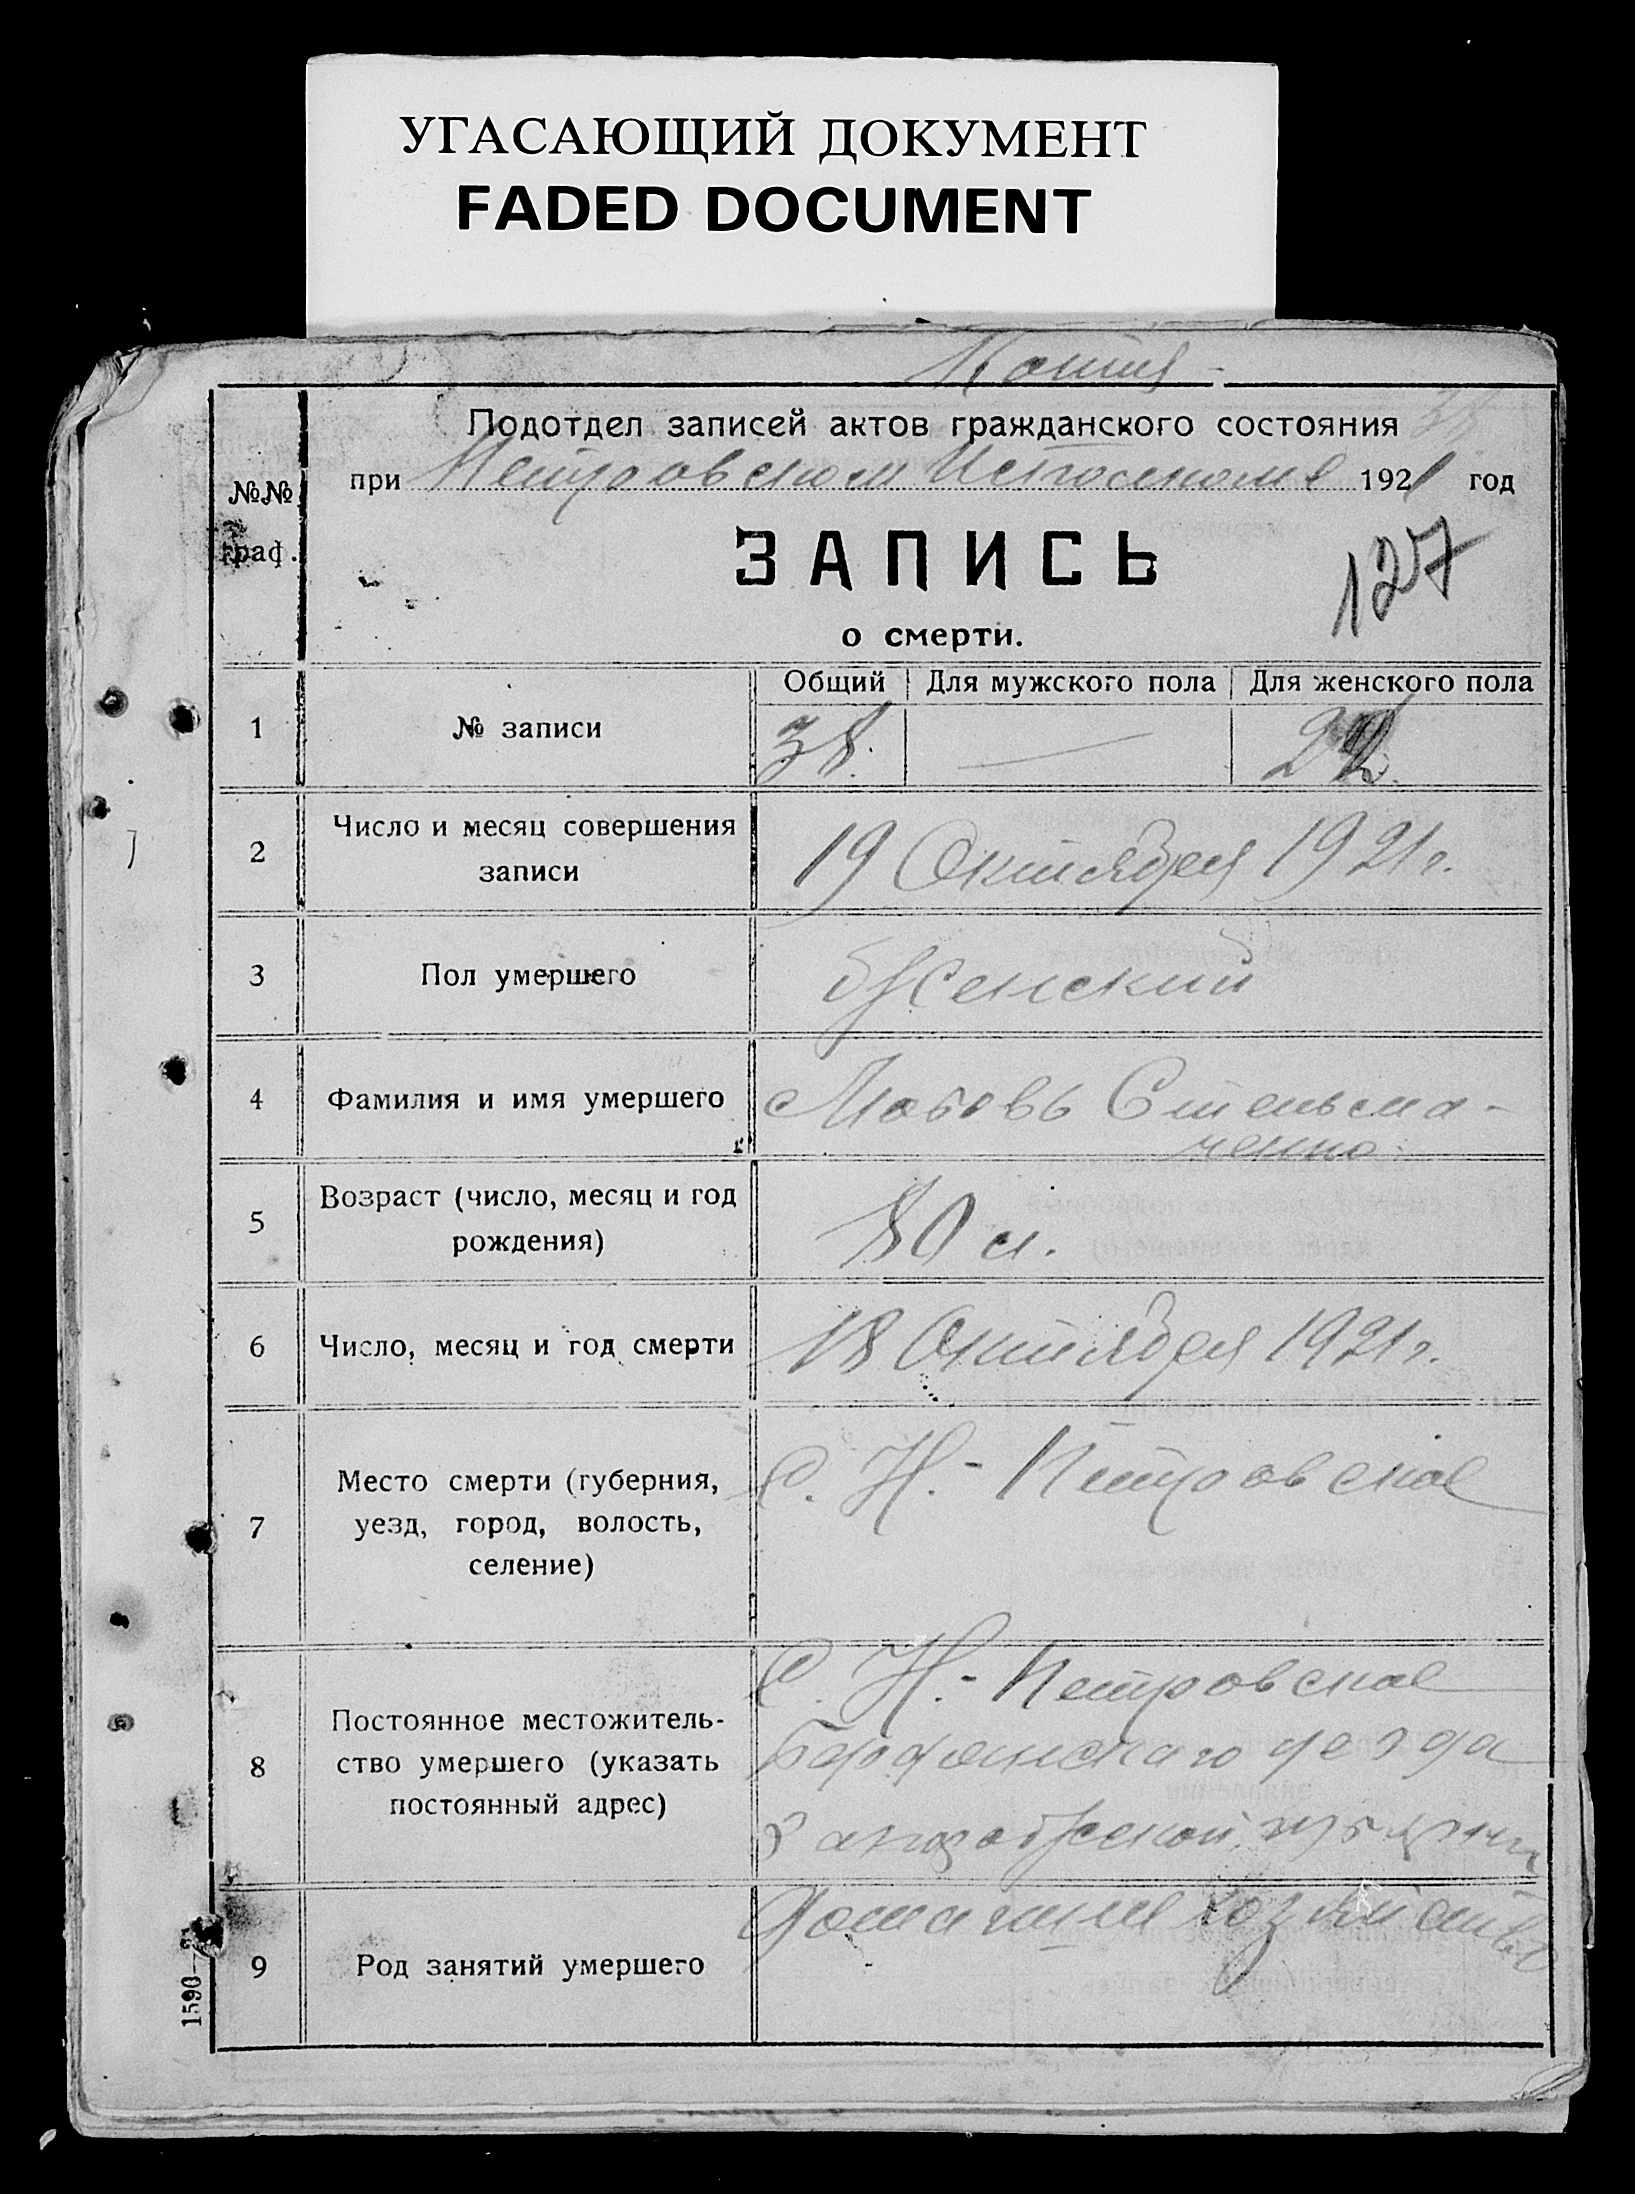 УГАСАЮЩИЙ ДОКУМЕНТ
FADED DOCUMENT
Копия
Подотдел записей актов гражданского состояния
при Петровском Исполкоме 1921 год
№№ граф.
ЗАПИСЬ
127
о смерти.
Общий Для мужского пола Для женского пола
1 № записи 38. —
2 Число и месяц совершения
записи
19 Октября 1921 г.
3 Пол умершего Женский
4 Фамилия и имя умершего Любовь
5 Возраст (число, месяц и год
рождения)
80 л.
6 Число, месяц и год смерти 18 Октября 1921 г.
7 Место смерти (губерния,
уезд, город, волость,
селение)
С. Н.-Петровское
8 Постоянное местожитель-
ство умершего (указать
постоянный адрес)
С. Н.-Петровское
Бердянского уезда
Запорожской губернии
9 Род занятий умершего
Домашнее хозяйство